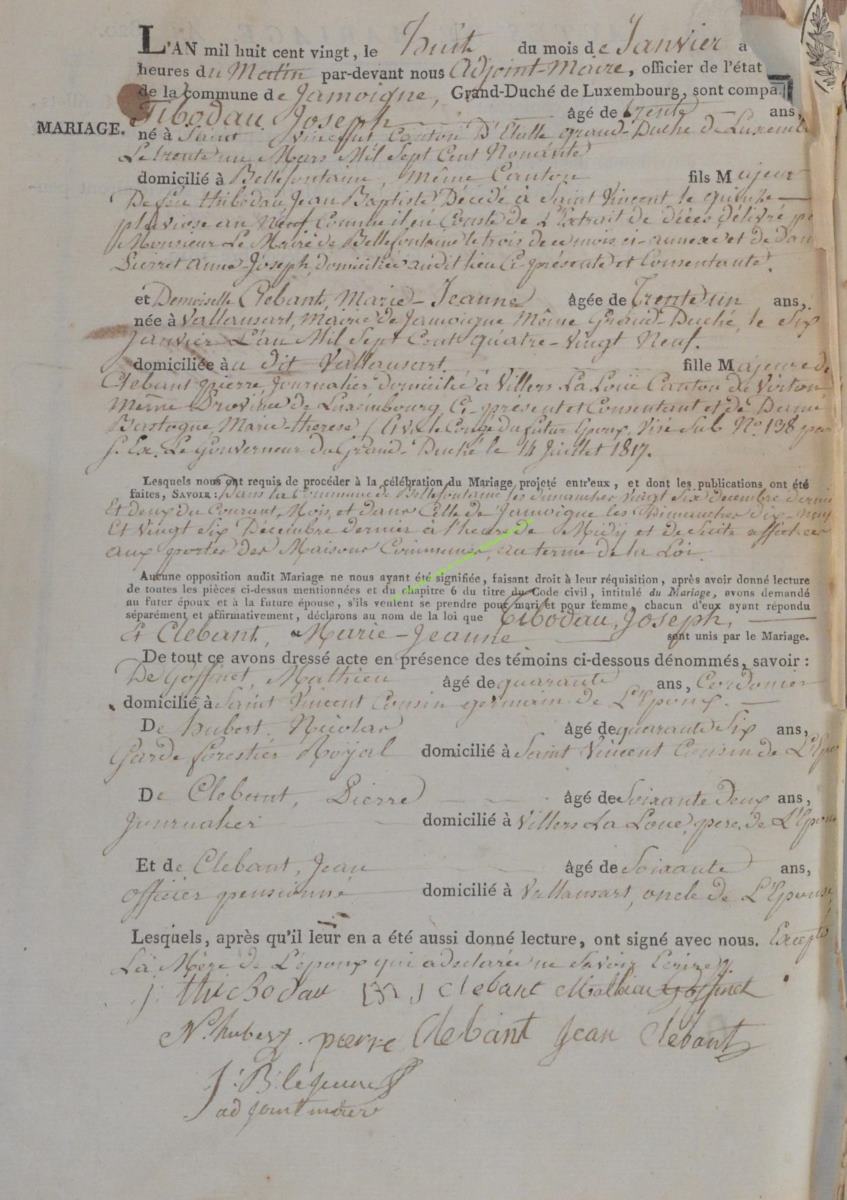 L'AN mil huit cent vingt, le huit du mois de Janvier a
heures du Matin par-devant nous Adjoint-Maire, officier de l'état
de la commune de Jamoigne, Grand-Duché de Luxembourg, sont compa
MARIAGE.
Tibodau Joseph âgé de trente ans,
né à Saint Vincent Canton D'Etalle Grand-Duché de Luxemb
Le trente un Mars Mil Sept Cent Nonante
domicilié à Bellefontaine, même Canton fils Majeur
De feu thibodau Jean Baptiste Décédé à Saint Vincent, le quinze
pluviose an Neuf Comme il en Conste de L'Extrait de décès délivré
Monsieur Le Maire de Bellefontaine le trois de ce mois ci-annexé et de
Pierret Anne Joseph, domiciliée audit lieu Ci-présente et Consentante.
et Demoiselle Clebant, Marie-Jeanne âgée de Trente un ans,
née à Vallansart, Mairie de Jamoigne Même Grand-Duché, le Six
Janvier L'an Mil Sept Cent Quatre-Vingt Neuf.
domiciliée au dit Vallansart. fille Majeure de
Clebant pierre Journalier domicilié à Villers La Loüe Canton de Virton
Même Province de Luxembourg, Ci-présent et Consentant et de Dame
Bastogne Marie-therese / Vu le Congé du futur Epoux, Visé Sub N.o 138 par
S. Ex. Le Gouverneur du Grand-Duché le 14 Juillet 1817.
Lesquels nous ont requis de procéder à la célébration du Mariage projeté entr'eux, et dont les publications ont été
faites, SAVOIR: Dans la Commune de Bellefontaine les Dimanches Vingt Six Decembre dernier
Et deux du Courant Mois, et dans Celle de Jamoigne les Dimanches dix-neuf
Et Vingt Six Décembre dernier à l'heure de Midy et de Suite affichées
aux portes des Maisons Communes, au terme de la Loi.
Aucune opposition audit Mariage ne nous ayant été signifiée, faisant droit à leur réquisition, après avoir donné lecture
de toutes les pièces ci-dessus mentionnées et du chapitre 6 du titre du Code civil, intitulé du Mariage, avons demandé
au futer époux et à la future épouse, s'ils veulent se prendre pour mari et pour femme, chacun d'eux ayant répondu
séparément et affirmativement, déclarons au nom de la loi que Tibodau, Joseph,
Et Clebant, Marie-Jeanne sont unis par le Mariage.
De tout ce avons dressé acte en présence des témoins ci-dessous dénommés, savoir :
De Goffinet, Mathieu âgé de quarante ans, Cordonier
domicilié à Saint Vincent Cousin germain de L'Epoux.
De hubert, Nicolas âgé de quarante Six ans,
Garde forestier Royal domicilié à Saint Vincent Cousin de L'Epo
De Clebant, Pierre âgé de Soixante deux ans,
Journalier domicilié à Villers La Loue, pere, de L'Epou
Et de Clebant, Jean âgé de Soixante ans,
officier pensionné domicilié à Vallansart, oncle de L'Epouse,
Lesquels, après qu'il leur en a été aussi donné lecture, ont signé avec nous. Excepté
La Mère de L'époux qui a déclarée ne Savoir Ecrire.
j: thiBodau j clebant Mathieu goffinet
N. hubert. pierre Clebant Jean Clebant
J: B: lejeune
adjoint maire